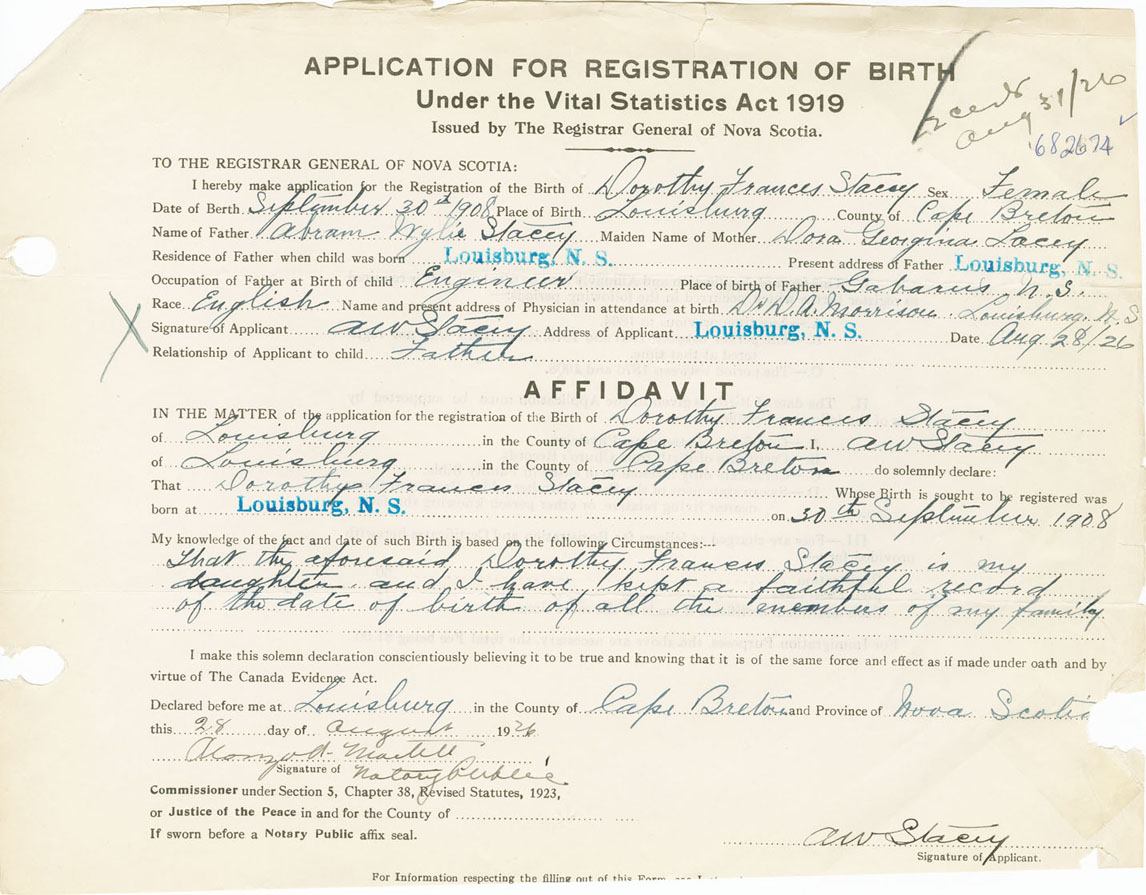 APPLICATION FOR REGISTRATION OF BIRTH
Under the Vital Statistics Act 1919
Issued by The Registrar General of Nova Scotia.
Aug 31/26
682674
TO THE REGISTRAR GENERAL OF NOVA SCOTIA:
I hereby make application for the Registration of the Birth of Dorothy Frances Stacey Sex Female
Date of Berth September 30th 1908 Place of Birth Louisburg County of Cape Breton
Name of Father Abram Wylie Stacey Maiden Name of Mother Dora Georgina Lacey
Residence of Father when child was born Louisburg, N. S. Present address of Father Louisburg, N. S.
Occupation of Father at Birth of child Engineer Place of birth of Father Gabarus N.S.
Race English Name and present address of Physician in attendance at birth Dr D.A. Morrison Louisburg N.S
Signature of Applicant AW Stacey Address of Applicant Louisburg, N. S. Date Aug 28/26
Relationship of Applicant to child Father
AFFIDAVIT
IN THE MATTER of the application for the registration of the Birth of Dorothy Frances Stacey
of Louisburg in the County of Cape Breton I, AW Stacey
of Louisburg in the County of Cape Breton do solemnly declare:
That Dorothy Frances Stacey Whose Birth is sought to be registered was
born at Louisburg, N. S. on 30th September 1908
My knowledge of the fact and date of such Birth is based on the following Circumstances:--
That the aforesaid Dorothy Frances Stacey is my
daughter and I have kept a faithful record
of the date of birth of all the members of my family
I make this solemn declaration conscientiously believing it to be true and knowing that it is of the same force and effect as if made under oath and by
virtue of The Canada Evidence Act.
Declared before me at Louisburg in the County of Cape Breton and Province of Nova Scotia
this 28 day of August 1926
Signature of Notary Public
Commissioner under Section 5, Chapter 38, Revised Statutes, 1923,
or Justice of the Peace in and for the County of
If sworn before a Notary Public affix seal.
AW Stacey
Signature of Applicant.
For Information respecting the filling out of this Form